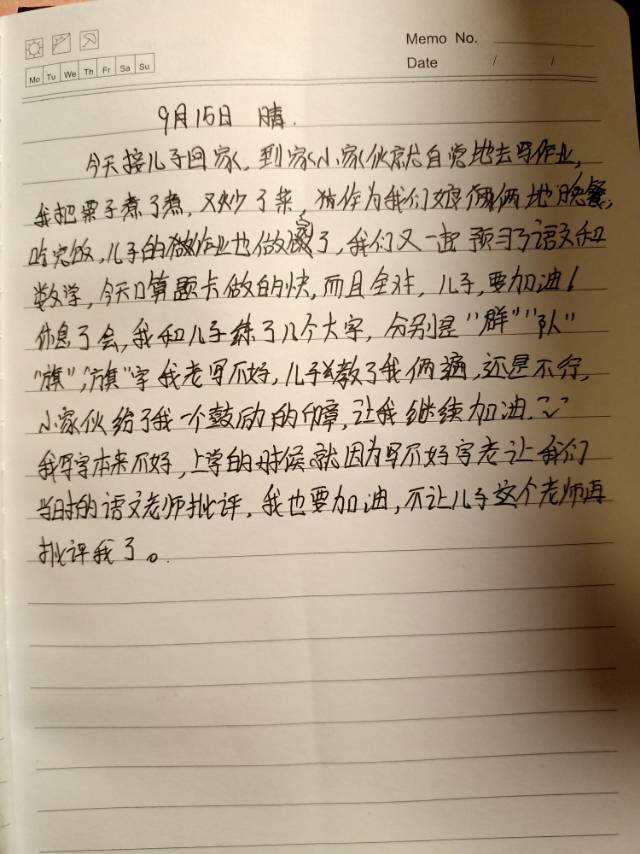 Memo No.
Date / /
Mo Tu We Th Fr Sa Su
9月15日 晴.
今天接儿子回家,到家小家伙就自觉地去写作业,
我把栗子煮了煮,又炒了菜,作为我们娘俩俩地晚餐,
吃完饭,儿子的做作业也做完了,我们又一起预习了语文和
数学,今天口算题卡做的快,而且全对,儿子,要加油!
休息了会,我和儿子练了几个大字,分别是"群""队"
"旗","旗"字我老写不好,儿子教了我俩遍,还是不行,
小家伙给了我一个鼓励的印章,让我继续加油.
我写字本来不好,上学的时候就因为写不好字老让我们
当时的语文老师批评,我也要加油,不让儿子这个老师再
批评我了。